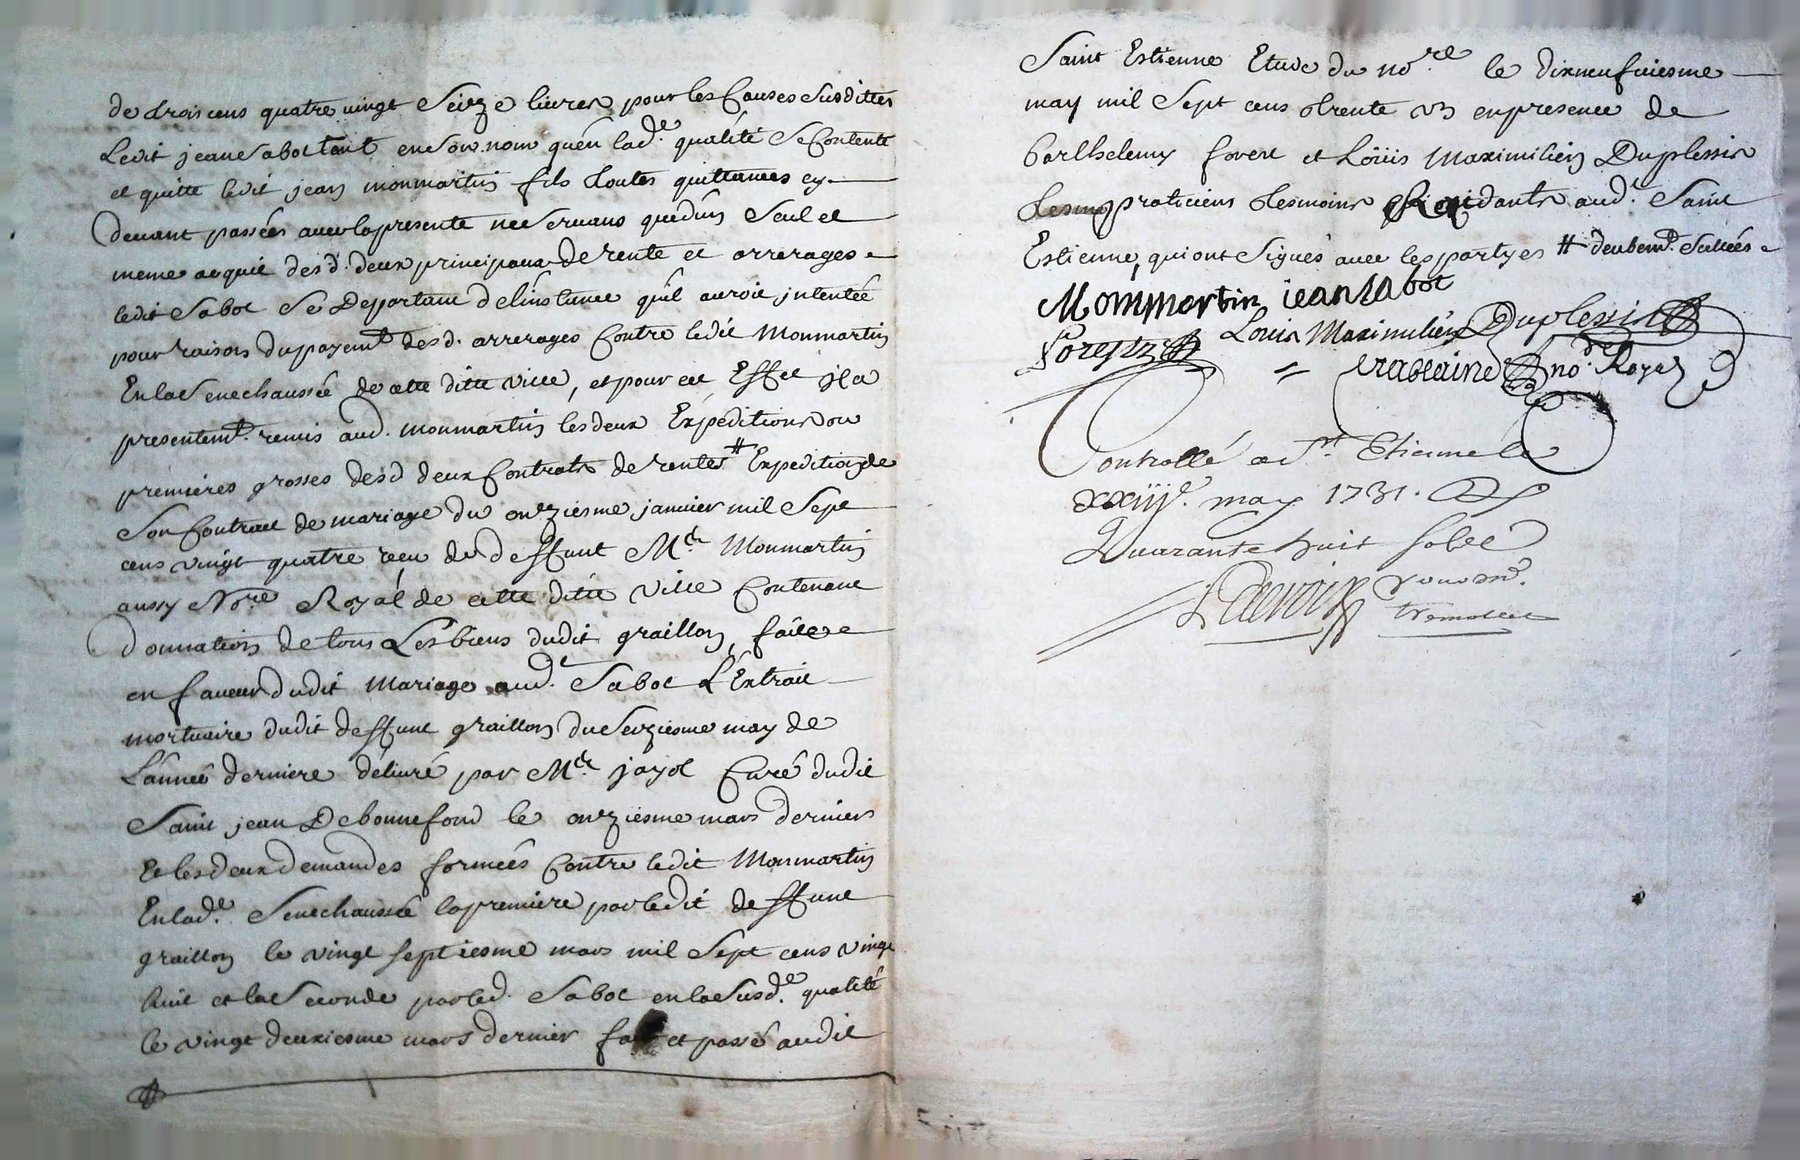 de trois cens quatre vingt Seize livres pour les Causes Susdittes
Ledit jean Sabot tant en Son nom qu'en lad.e qualité Se Contente
et quitte ledit jean monmartin fils toutes quittances cy
devant passées avec la presente ne Servans que d'un Seul et
meme acquit desd. deux principaux de rente et arrerages
ledit Sabot Se Departant de l'instance qu'il auroit jntentée
pour raison du payemt. desd. arrerages Contre ledit Monmartin
En la Senechaussée de cette ditte ville, et pour cet Effet jl a
presentemt. remis aud. monmartin les deux Expeditions ou
premières grosses desd deux Contrats de rentes # Expedition de
Son Contract de mariage du onziesme janvier mil Sept
cens vingt quatre receu du deffunt Me. Monmartin
aussy No.re Royal de cette ditte ville Contenant
Donnation de tous Les biens dudit graillon, faitte
en faveur dudit Mariage aud.t Sabot L'Extrait
mortuaire dudit deffunt graillon du Seiziesme may de
L'année derniere délivré par Me. jayol Curé dudit
Saint jean De bonnefond le onziesme mars dernier
Et les deux demandes formées Contre ledit Monmartin
En lad.e Senechaussée la premiere par ledit deffunt
graillon le vingt septiesme mars mil Sept cens vingt
huit et la Seconde par led. Sabot en la Susd.e qualité
le vingt deuxiesme mars dernier fait et passé audit
Saint Estienne Etude du no.re le dixneufviesme
may mil Sept cens trente un en presence de
barthelemy forest et Loüis Maximilien Duplessis
praticiens temoins residants aud.t Saint
Estienne, qui ont Signés avec les partyes #
Mommartin jean sabot
Forest Louis Maximilien Duplessis
no.re Royal
Controllé a St. Etienne le
xxiij.e may 1731.
Quarante huit sols